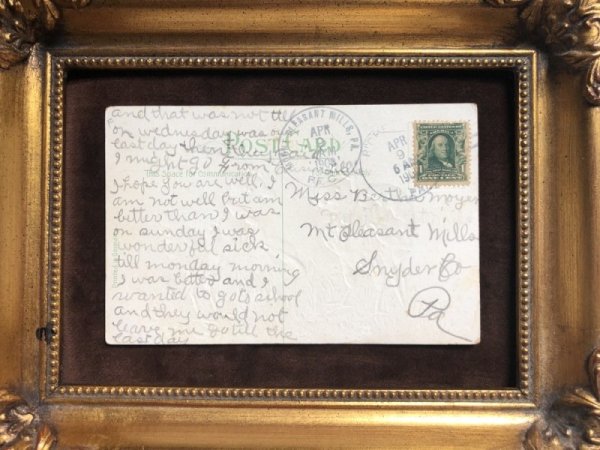 and that was not till
on wednesday was our
last day then they said
I might go
I hope you are well, I
am not well but am
better than I was
on sunday I was
wonderful sick
till monday morning
I was better and I
wanted to go to school
and they would not
leave me go till the
last day
POSTCARD
This Space for Communication
PLEASANT MILLS, PA.
APR
REC'D
APR
9
Miss Bertha Moyer
Mt Pleasant Mills
Snyder Co
Pa